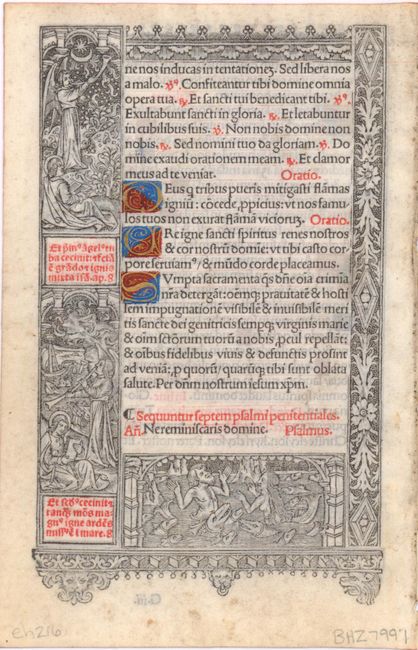 ne nos inducas in tentationeꝫ. Sed libera nos
a malo. ℣. Confiteantur tibi domine omnia
opera tua. ℟. Et sancti tui benedicant tibi. ℣.
Exultabunt sancti in gloria. ℟. Et letabuntur
in cubilibus suis. ℣. Non nobis domine non
nobis. ℟. Sed nomini tuo da gloriam. ℣. Do
mine exaudi orationem meam. ℟. Et clamor
meus ad te veniat. Oratio.
DEus q̃ tribus pueris mitigasti flãmas
igniũ: cõcede, ꝓpicius: vt nos famu
los tuos non exurat flãma vicioruꝫ. Oratio.
VRe igne sancti spiritus renes nostros
& cor nostrũ domie: vt tibi casto cor
pore seruiamꝰ/ & mũdo corde placeamus.
SVmpta sacramenta q̃s dñe oĩa crimina
nr̃a detergãt: oẽmqꝫ prauitatẽ & hosti
lem impugnationẽ visibilẽ & inuisibilẽ meri
tis sancte dei genitricis sempqꝫ virginis marie
& oĩm sctorum tuorũ a nobis, ꝓcul repellãt:
& oĩbus fidelibus viuis & defunctis prosint
ad veniã:, ꝓ quorũ/ quarũqꝫ tibi sunt oblata
salute. Per dñm nostrum iesum xp̃m.
¶ Sequuntur septem psalmi penitentiales.
Añ. Ne reminiscaris domine. Psalmus.
Et p̃imꝰ ãgelꝰ tu
ba cecinit: ⁊ fctã
ẽ grãdo ⁊ ignis
mixta ĩ sãg. ap. 8
Et scd̃ꝰ cecinit ⁊
tanqꝫ mõs ma
gnꝰ igne ardẽs
missꝰ ẽ ĩ mare. 8
G.iii.
en216
BHZ7997